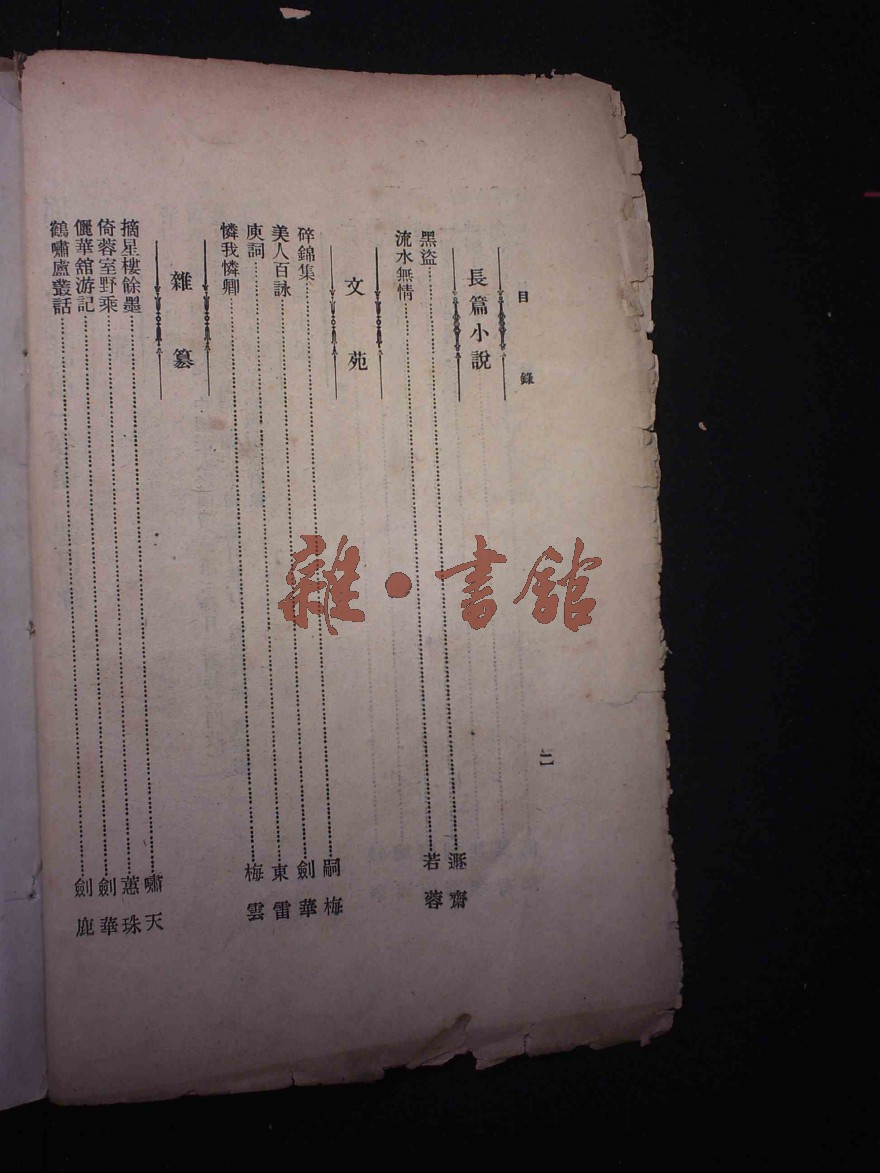 目錄 二
長篇小說
黑盜……遯齋
流水無情……若蓉
文苑
碎錦集……嗣梅
美人百詠……劍華
庾詞……東雷
憐我憐卿……梅雲
雜纂
摘星樓餘墨……嘯天
倚蓉室野乘……蕙珠
儷華舘游記……劍華
鶴嘯盧叢話……劍鹿
雜·書館